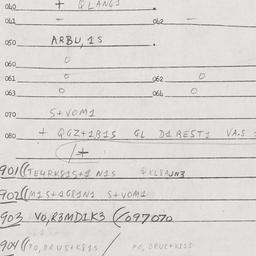 040 + QLANG1
041 - 042 -
050 ARBU,1S .
060 0
061 0 062 0
063 0 064 0
070 S+VOM1
080 + QGZ+1B1S GL D1REST1 VA.S
(/+
901((TE4RKS1S+1 N1S
902((M1S+1G81N1 S+VOM1
903 VO,R3MD1K3 (/097070
904((PO,BRUS+KS1S / PO,BRUS+KS1S